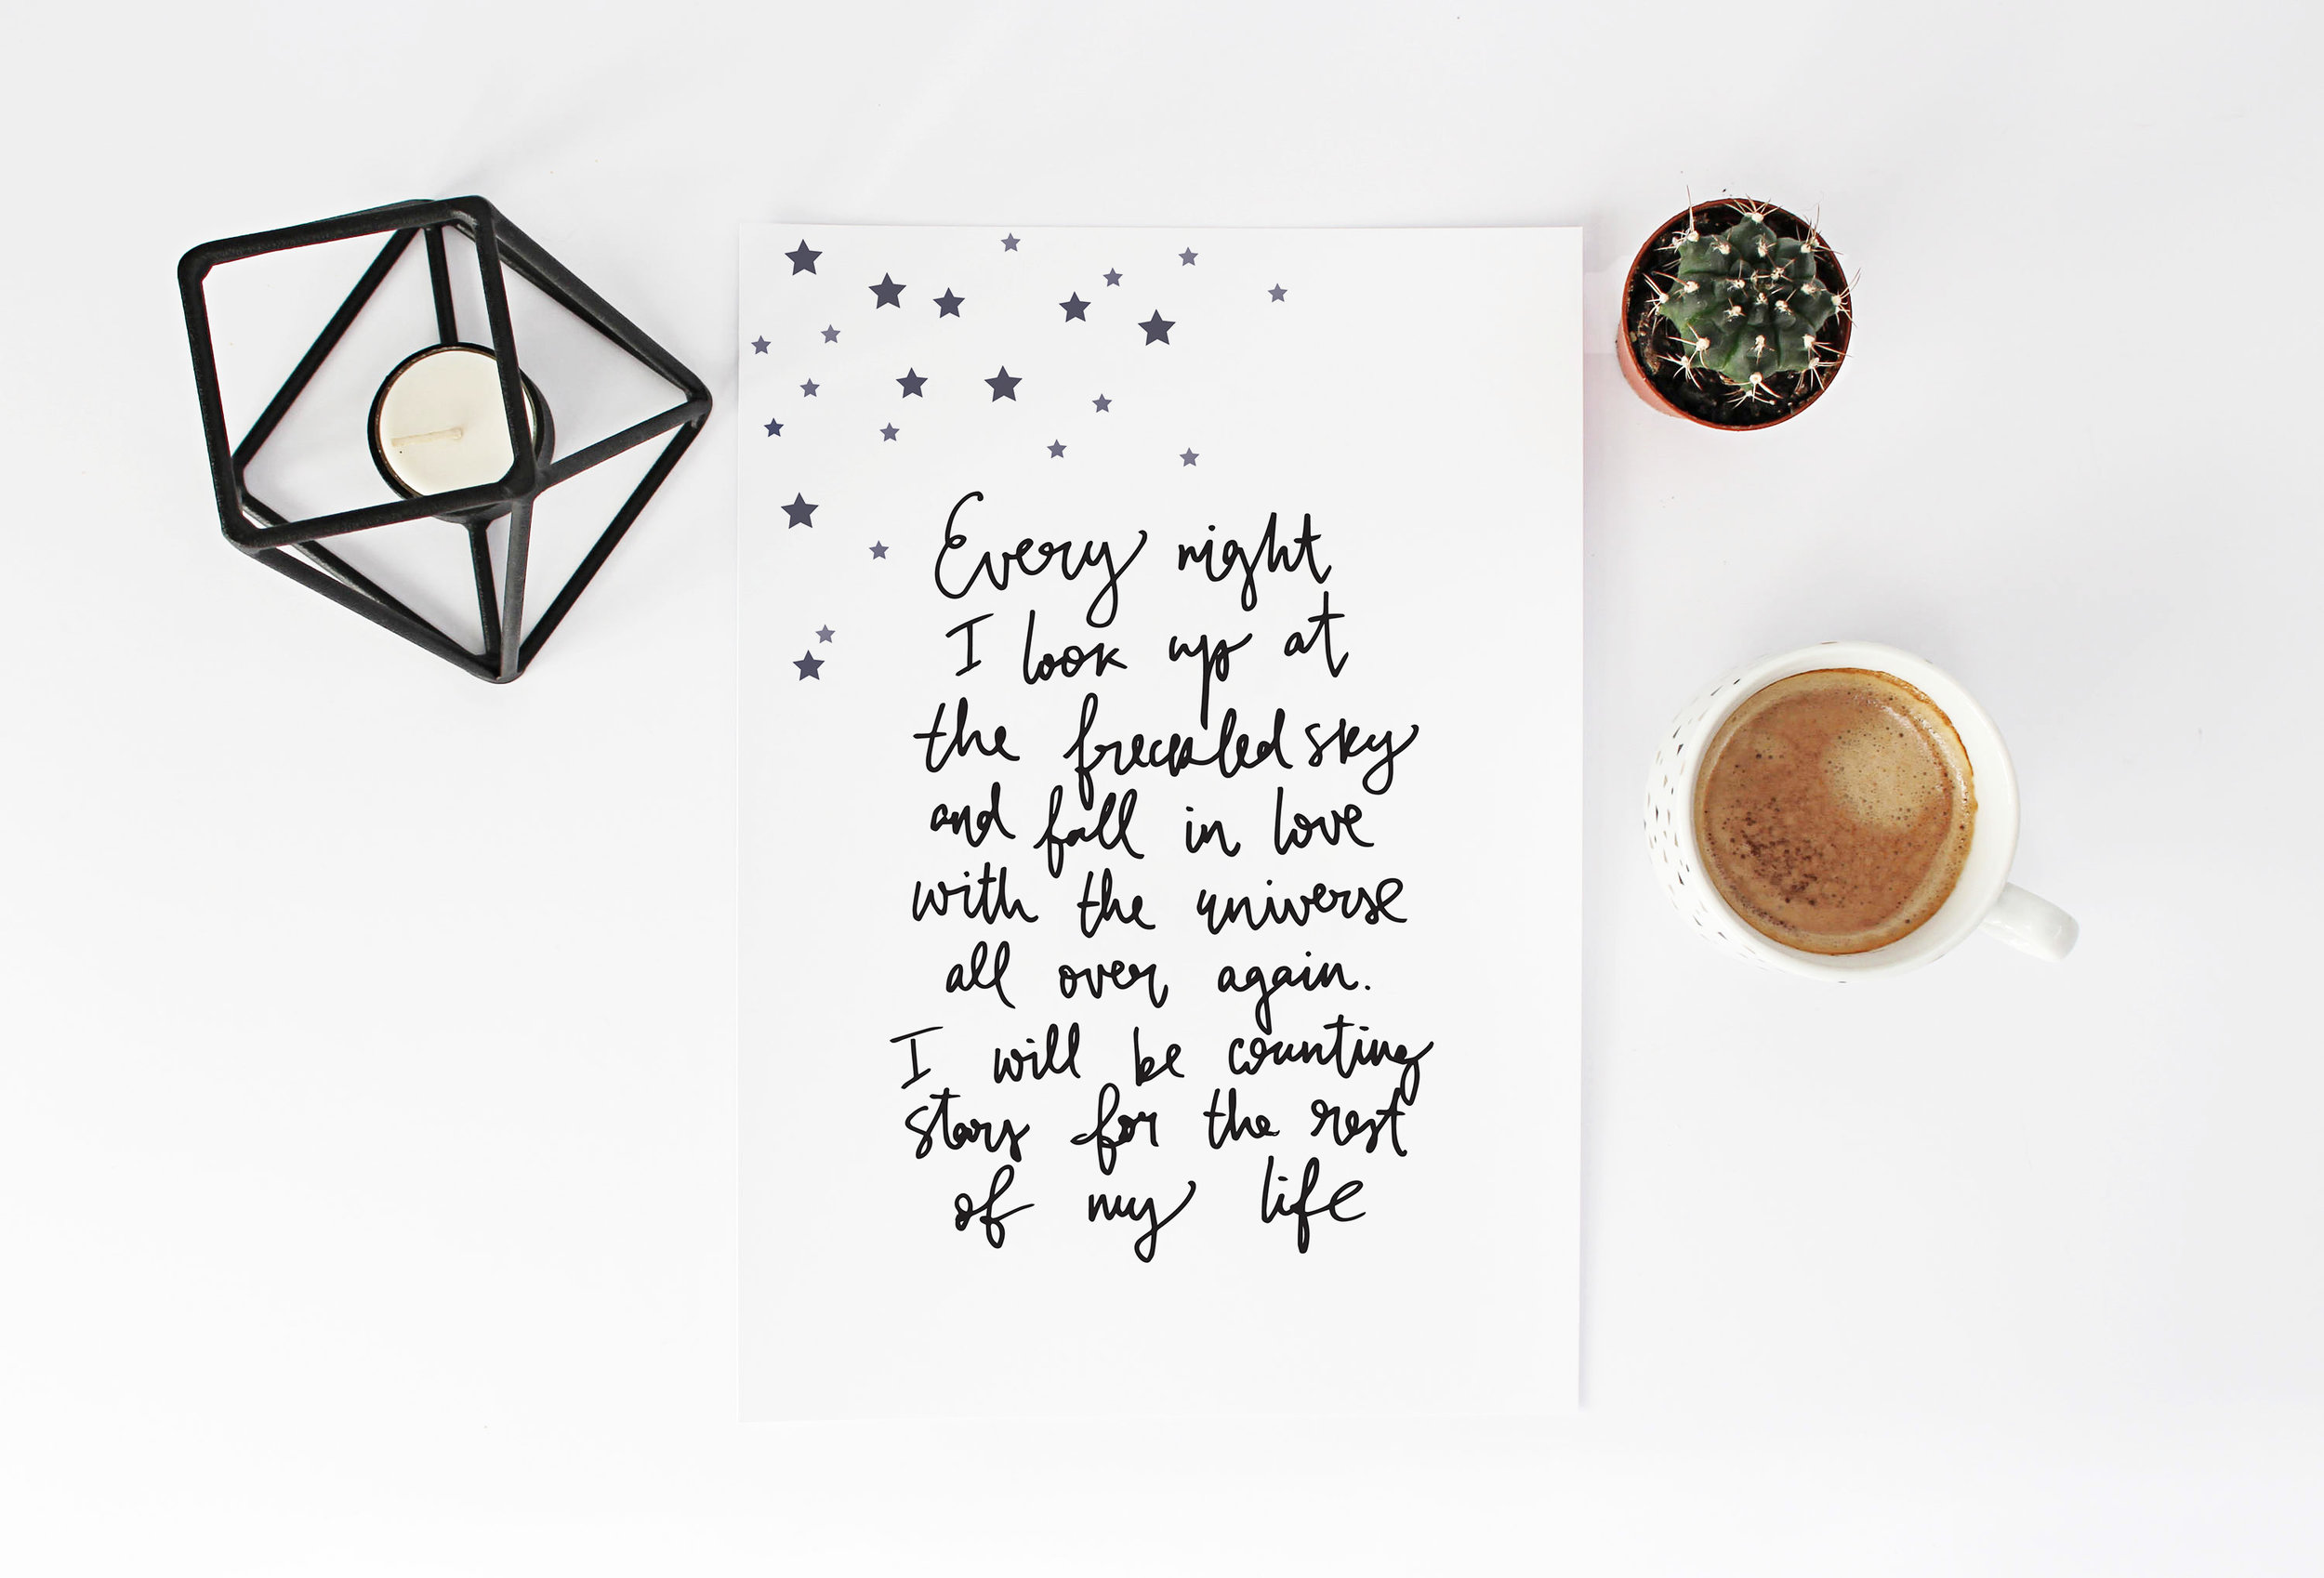 Every night
I look up at
the freckled sky
and fall in love
with the universe
all over again.
I will be counting
stars for the rest
of my life